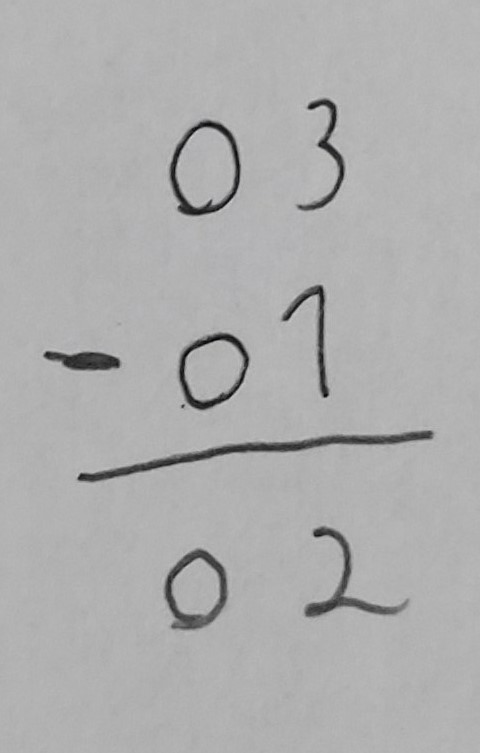 03
- 01
02